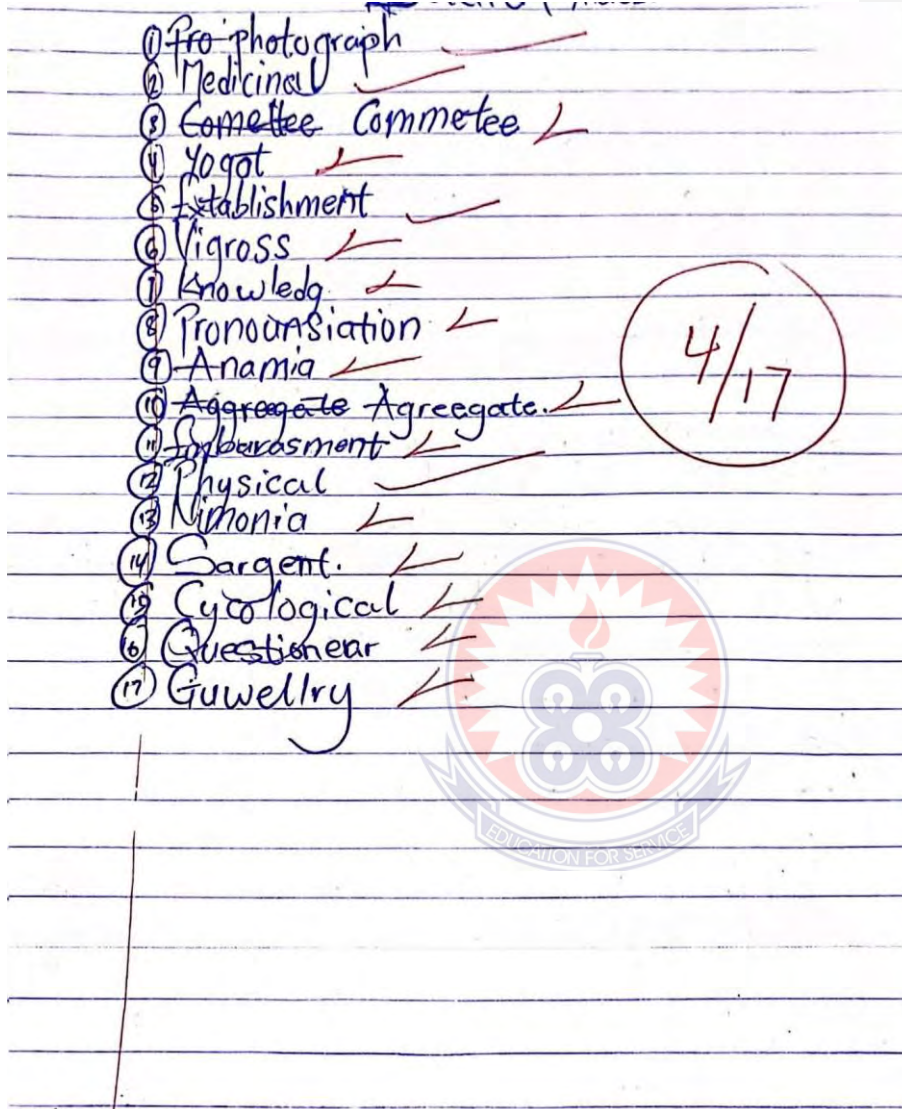 ① ~~Pro~~ photograph
② Medicinal
③ ~~Comettee~~ Commetee
④ Yogot
⑤ Establishment
⑥ Vigross
⑦ Knowledg
⑧ Pronounsiation
⑨ Anamia
⑩ ~~Aggregate~~ Agreegate.
⑪ Embarasment
⑫ Physical
⑬ Nimonia
⑭ Sargent.
⑮ Cycological
⑯ Questionear
⑰ Guwellry
4/17
EDUCATION FOR SERVICE